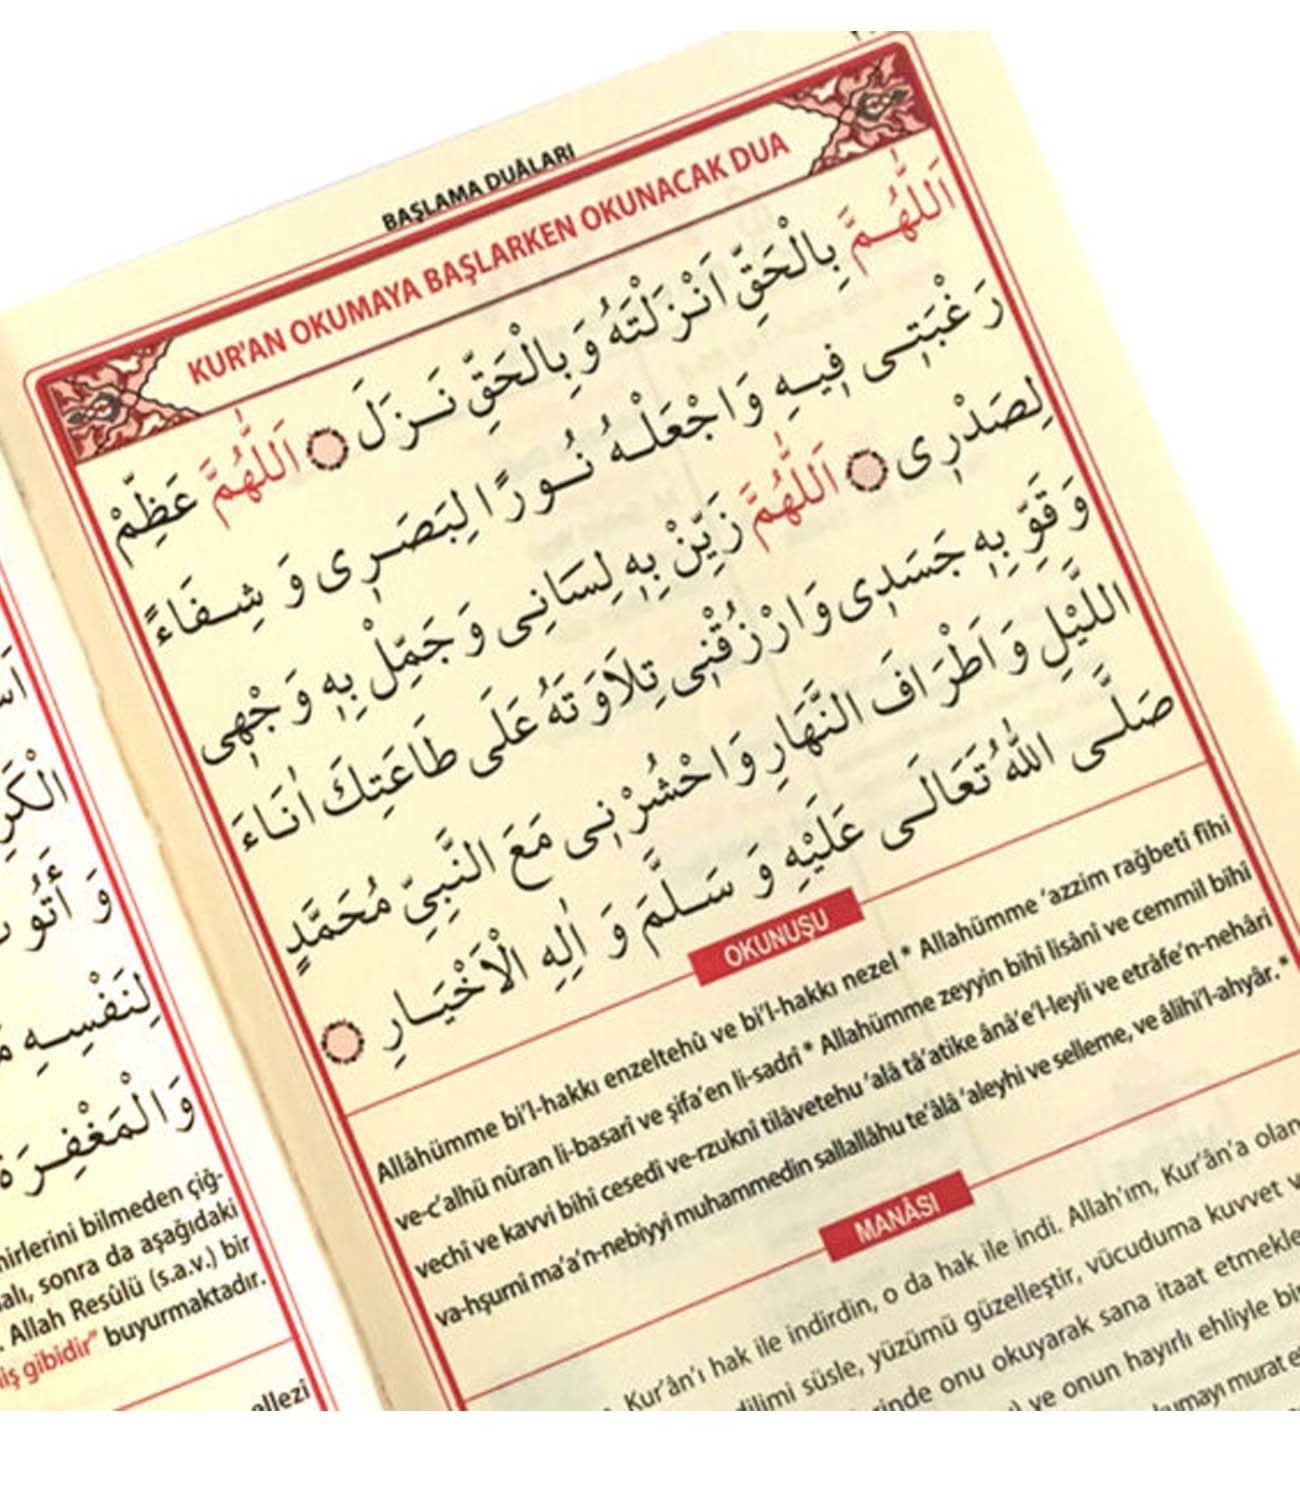 BAŞLAMA DUÂLARI
KUR'AN OKUMAYA BAŞLARKEN OKUNACAK DUA
اَللّٰهُمَّ بِالْحَقِّ اَنْزَلْتَهُ وَبِالْحَقِّ نَزَلَ ۝ اَللّٰهُمَّ عَظِّمْ
رَغْبَتِى فِيهِ وَاجْعَلْهُ نُورًا لِبَصَرِى وَ شِفَاءً
لِصَدْرِى ۝ اَللّٰهُمَّ زَيِّنْ بِهِ لِسَانِى وَ جَمِّلْ بِهِ وَجْهِى
وَ قَوِّ بِهِ جَسَدِى وَارْزُقْنِى تِلَاوَتَهُ عَلَى طَاعَتِكَ اٰنَاءَ
اللَّيْلِ وَ اَطْرَافَ النَّهَارِ وَاحْشُرْنِى مَعَ النَّبِيِّ مُحَمَّدٍ
صَلَّى اللّٰهُ تَعَالَى عَلَيْهِ وَ سَلَّمَ وَ اٰلِهِ الْاَخْيَارِ ۝
OKUNUŞU
Allâhümme bi'l-hakkı enzeltehû ve bi'l-hakkı nezel * Allahümme 'azzim rağbetî fîhi
ve-c'alhü nûran li-basarî ve şifa'en li-sadrî * Allahümme zeyyin bihî lisânî ve cemmil bihî
vechî ve kavvi bihî cesedî ve-rzuknî tilâvetehu 'alâ tâ'atike ânâ'e'l-leyli ve etrâfe'n-nehâri
va-hşurnî ma'a'n-nebiyyi muhammedin sallallâhu te'âlâ 'aleyhi ve selleme, ve âlihi'l-ahyâr. *
MANÂSI
Kur'ân'ı hak ile indirdin, o da hak ile indi. Allah'ım, Kur'ân'a olan
dilimi süsle, yüzümü güzelleştir, vücuduma kuvvet
onu okuyarak sana itaat
ve onun hayırlı ehliyle
الْكَرِ
لِنَفْسِهِ
وَالْمَغْفِرَةَ
bilmeden çiğ-
sonra da aşağıdaki
Allah Resûlü (s.a.v.) bir
gibidir" buyurmaktadır.